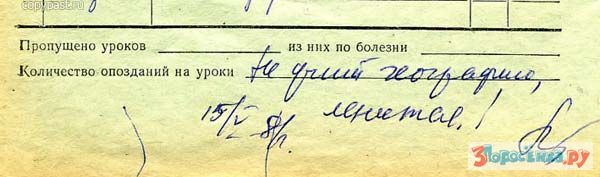 copypast.ru
Пропущено уроков из них по болезни
Количество опозданий на уроки Не учит географию,
15/V 81г. ленится!
3Поросёнка.ру